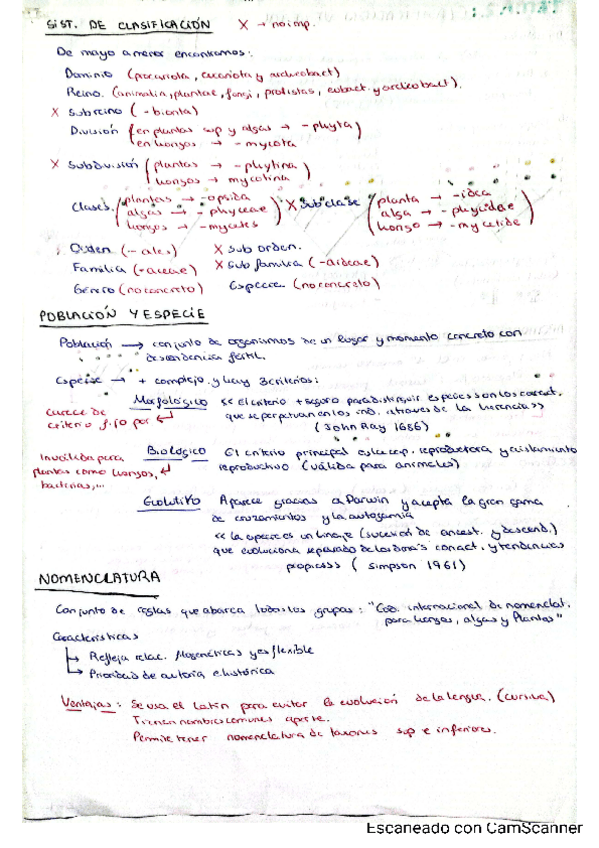 SIST. DE CLASIFICACIÓN X → no imp.
De mayo a menor encontramos:
Dominio (procariota, eucariota y archeobact)
Reino. (animalia, plantae, fungi, protistas, eubact. y archeobact).
X Subreino (-bionta)
División (en plantas sup y algas → -phyta)
en hongos → -mycota
X Subdivisión (plantas → -phytina)
hongos → mycotina
Clases (plantas → -opsida
algas → -phyceae
hongos → -mycetes)
X Subclase (planta → -idea
alga → -phycidae
hongo → -mycetide)
Orden (-ales) X Sub orden.
Familia (-aceae) X Sub familia (-aideae)
Género (no concreto) Especie (no concreto)
POBLACIÓN Y ESPECIE
Población → conjunto de organismos de un lugar y momento concreto con
descendencia fertil.
Especie → + complejo y hay 3 criterios:
Morfológico << El criterio + seguro para distinguir especies son los caract.
que se perpetuan en los ind. a traves de la herencia>>
(John Ray 1686)
Carece de
criterio por
Biológico El criterio principal es la cap. reproductora y aislamiento
reproductivo (válida para animales)
Invalidada para
plantas como hongos,
bacterias,...
Evolutivo Aparece gracias a Darwin y acepta la gran gama
de cruzamientos y la autogamia
<< la especie es un linaje (sucesión de ancest. y descend.)
que evoluciona separado de los demás con act. y tendencias
propias>> (Simpson 1961)
NOMENCLATURA
Conjunto de reglas que abarca todos los grupos: "Cod. internacional de nomenclat.
para hongos, algas y Plantas"
Características
↳ Refleja relac. filogenéticas y es flexible
↳ Prioridad de autoria e histórica
Ventajas: Se usa el Latín para evitar la evolución de la lengua. (cursiva)
Tienen nombres comunes aparte.
Permite tener nomenclatura de taxones sup e inferiores.
Escaneado con CamScanner